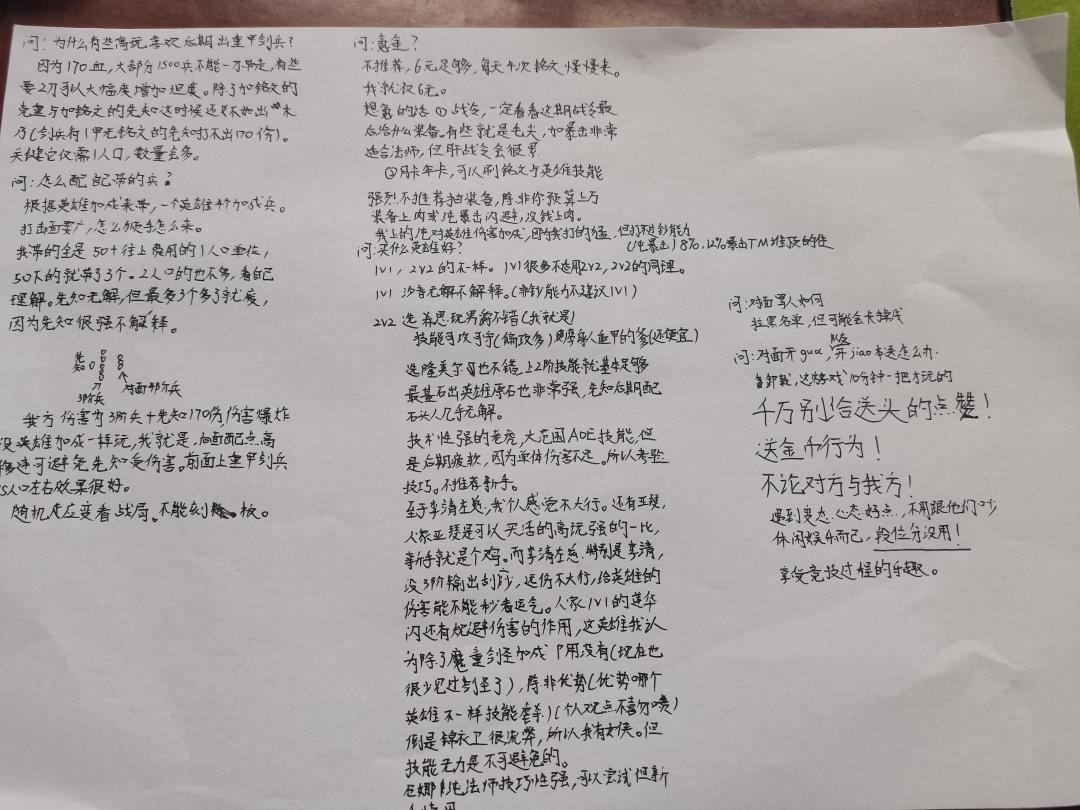 问:为什么有些高玩喜欢后期出重甲剑兵?
因为170血,大部分1500兵不能一刀带走,有些
要2刀可以大幅度增加坦度。除了加铭文的
克星与加铭文的先知这时候还不如出
乃(剑兵有1甲无铭文的先知打不出170伤)。
关键它仅需1人口,数量去多。
问:怎么配自己带的兵?
根据英雄加成来带,一个英雄4个加成兵。
打击面要广,怎么顺手怎么来。
我带的全是50+往上费用的1人口单位,
50下的就带了3个。2人口的也不多,看自己
理解。先知无解,但最多3个多了就废,
因为先知很强不解释。
先知
3阶兵
对面4阶兵
我方伤害为3阶兵+先知170伤,伤害爆炸
没英雄加成一样玩,我就是,后面配点高
移速可避免先知受伤害。前面上重甲剑兵
15人口左右效果很好。
随机应变看战局。不能刻板。
问:氪金?
不推荐,6元足够,每天4次铭文慢慢来。
我就仅6元。
想氪的话①战令,一定看看这期战令最
后给什么装备。有些就是毛尖,如暴击非常
适合法师,但肝战令会很累
②月卡年卡,可以刷铭文与英雄技能
强烈不推荐抽装备,除非你预算上万
装备上肉或纯暴击闪避,没钱上肉。
我上的纯对英雄伤害加成,因为我打的猛,但打不过钞能力
(纯暴击)8%,12%暴击TM堆及的住
问:买什么英雄好?
1V1,2V2的不一样。1V1很多不适用2V2,2V2的同理。
1V1 沙吾无解不解释。(非钞能力不建议1V1)
2V2 选希思玩男爵不错(我就是)
技能可攻可守(偏攻多)魔摩乘人重甲的爹(还便宜)
选隆美尔也不错,上2阶技能就基本足够
最基石出英雄原石也非常强,先知后期配
石头人几乎无解。
技术性强的老虎,大范围AOE技能,但
是后期疲软,因为单体伤害不足。所以考验
技巧。不推荐新手。
至于李清左慈,我个人感觉不大行。还有亚瑟,
人家亚瑟是可以灵活的高玩强的一比,
新手就是个鸡。而李清左慈.特别是李清,
没3阶输出刮痧,远伤不大行,给英雄的
伤害能不能秒看运气。人家1V1的莲华
闪还有规避伤害的作用,这英雄我认
为除了魔重剑圣加成屁用没有(现在也
很少见过剑圣了),除非优势(优势哪个
英雄不一样技能虐杀)(个人观点不喜勿喷)
倒是锦衣卫很流弊,所以我有女侠。但
技能无力是不可避免的。
妲娜纯法师技巧性强,可以尝试但新
问:对面骂人如何
拉黑名单,但可能会卡掉线
问:对面开gua,队友开jiao本送怎么办
自卸载,这游戏10分钟一把才玩的
千万别给送头的点赞!
送金币行为!
不论对方与我方!
遇到变态.心态好点.,不用跟他们吵
休闲娱乐而已,段位分没用!
享受竞技过程的乐趣。